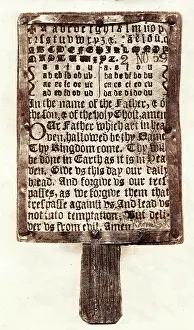 a b c d e f g h i k l m n o p
q r s t u v w x y z &. a e i o u
A B C D E F G H I K L M N O P Q
2 NO 59
a e i o u
ab eb ib ob ub
ac ec ic oc uc
In the name of the Father, & of
the Son, & of the holy Ghost. amen
Our Father which art in hea
ven, hallowed be thy Name
Thy Kingdom come. Thy wil
be done in Earth as it is in Hea
ven. Give us this day our daily
bread. And forgive us our tres
passes, as we forgive them that
trespasse against us. And lead us
not into temptation, But deli
ver us from evil. Amen.